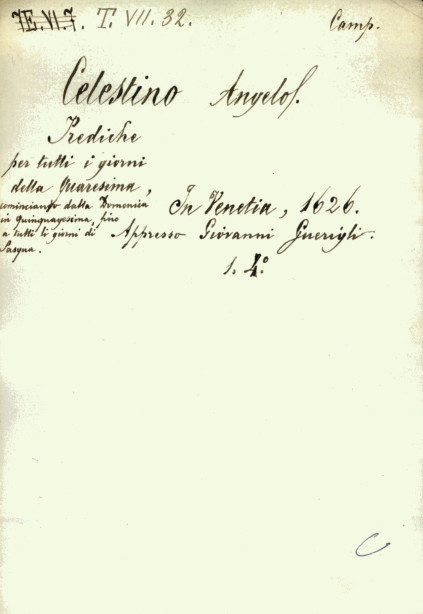 7E.VI.7. T. VII. 32. Camp.
Celestino Angelo
Prediche
per tutti i giorni
della Quaresima,
cominciando dalla Domenica
in Quinquagesima, fino
a tutti li giorni di
Pasqua.
In Venetia, 1626.
Appresso Giovanni Guerigli.
1. 4.º